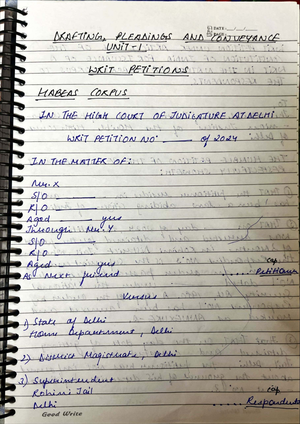 DATE:
DRAFTING, PLEADINGS AND CONVEYANCE
UNIT-1
WRIT PETITIONS
HABEAS CORPUS
IN THE HIGH COURT OF JUDICATURE AT DELHI
WRIT PETITION NO. ______ of 2024
IN THE MATTER OF:
Mr. X
S/O ______
R/O ______
Aged ______ yrs
Through Mr. Y
S/O ______
R/O ______
Aged ______ yrs
As Next friend ..... Petitioner
Versus
1) State of Delhi
Home Department, Delhi
2) District Magistrate, Delhi
3) Superintendent
Rohini Jail
Delhi ..... Respondents
Good Write